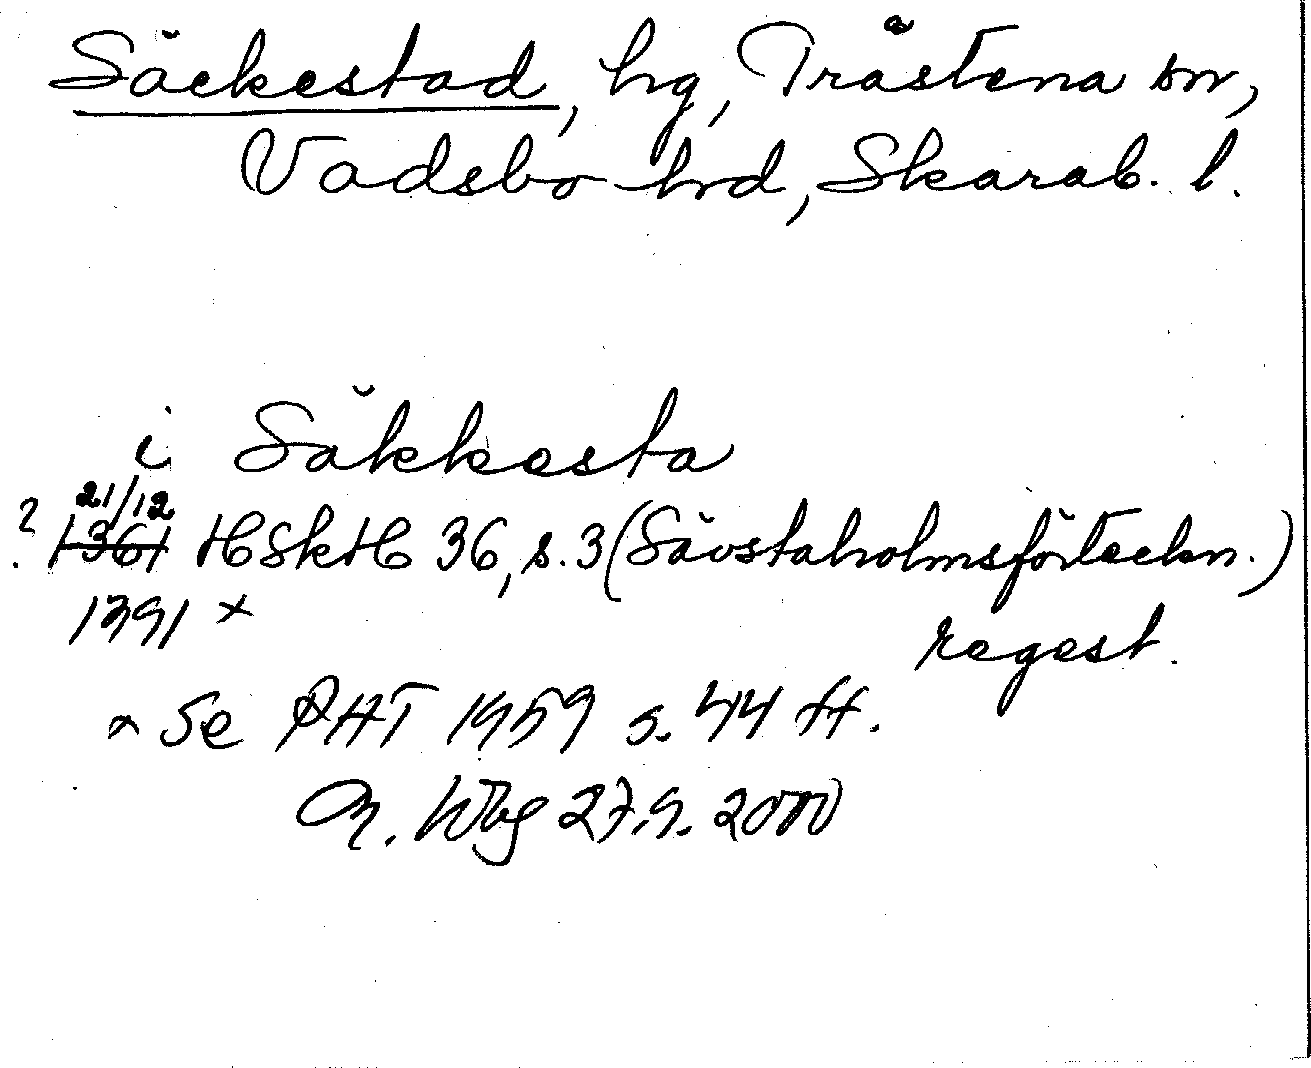 Säckestad, hg, Trästena sn,
Vadsbo hrd, Skarab. l.
i Säkkesta
21/12
? 1361 HSkH 36, s. 3 (Sävstaholmsförteckn.)
1391 x
regest.
x Se PHT 1959 s. 44 ff.
27.9.2000